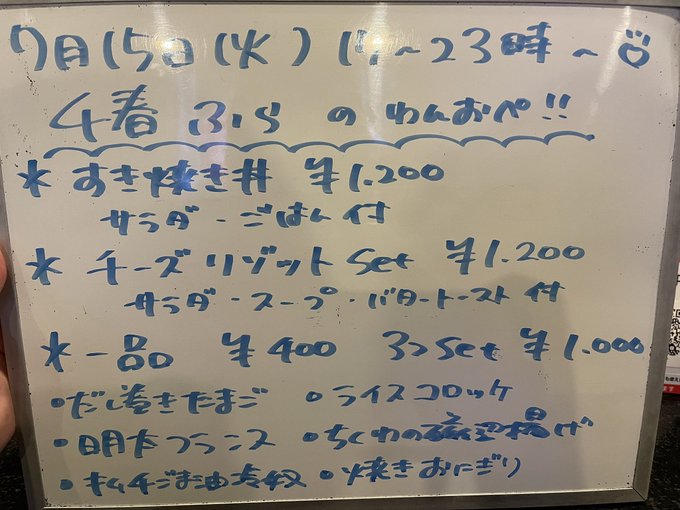 7月15日(火) 17~23時~
4春 ふらの わんおぺ!!
* すき焼き丼 ¥1.200
サラダ・ごはん付
* チーズリゾット Set ¥1.200
サラダ・スープ・バタートースト付
* 一品 ¥400 3つSet ¥1.000
・だし巻きたまご ・ライスコロッケ
・明太フランス ・ちくわの磯辺揚げ
・キムチごま油冷奴 ・焼きおにぎり